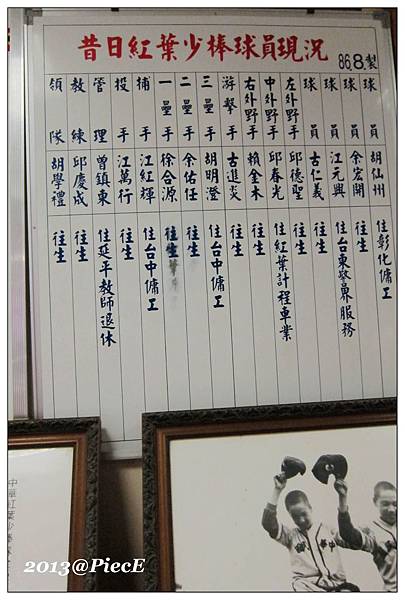 昔日紅葉少棒球員現況
86.8.製
球員 胡仙州 住彰化傭工
球員 余宏開 往生
球員 江元興 住台東警界服務
球員 古仁義 往生
左外野手 邱德聖 往生
中外野手 邱春光 住紅葉計程車業
右外野手 賴金木 往生
游擊手 古進炎 往生
三壘手 胡明澄 住台中傭工
二壘手 余佑任 往生
一壘手 徐合源 往生
捕手 江紅輝 住台中傭工
投手 江萬行 往生
管理 曾鎮東 住延平教師退休
教練 邱慶成 往生
領隊 胡學禮 往生
2013@PiecE